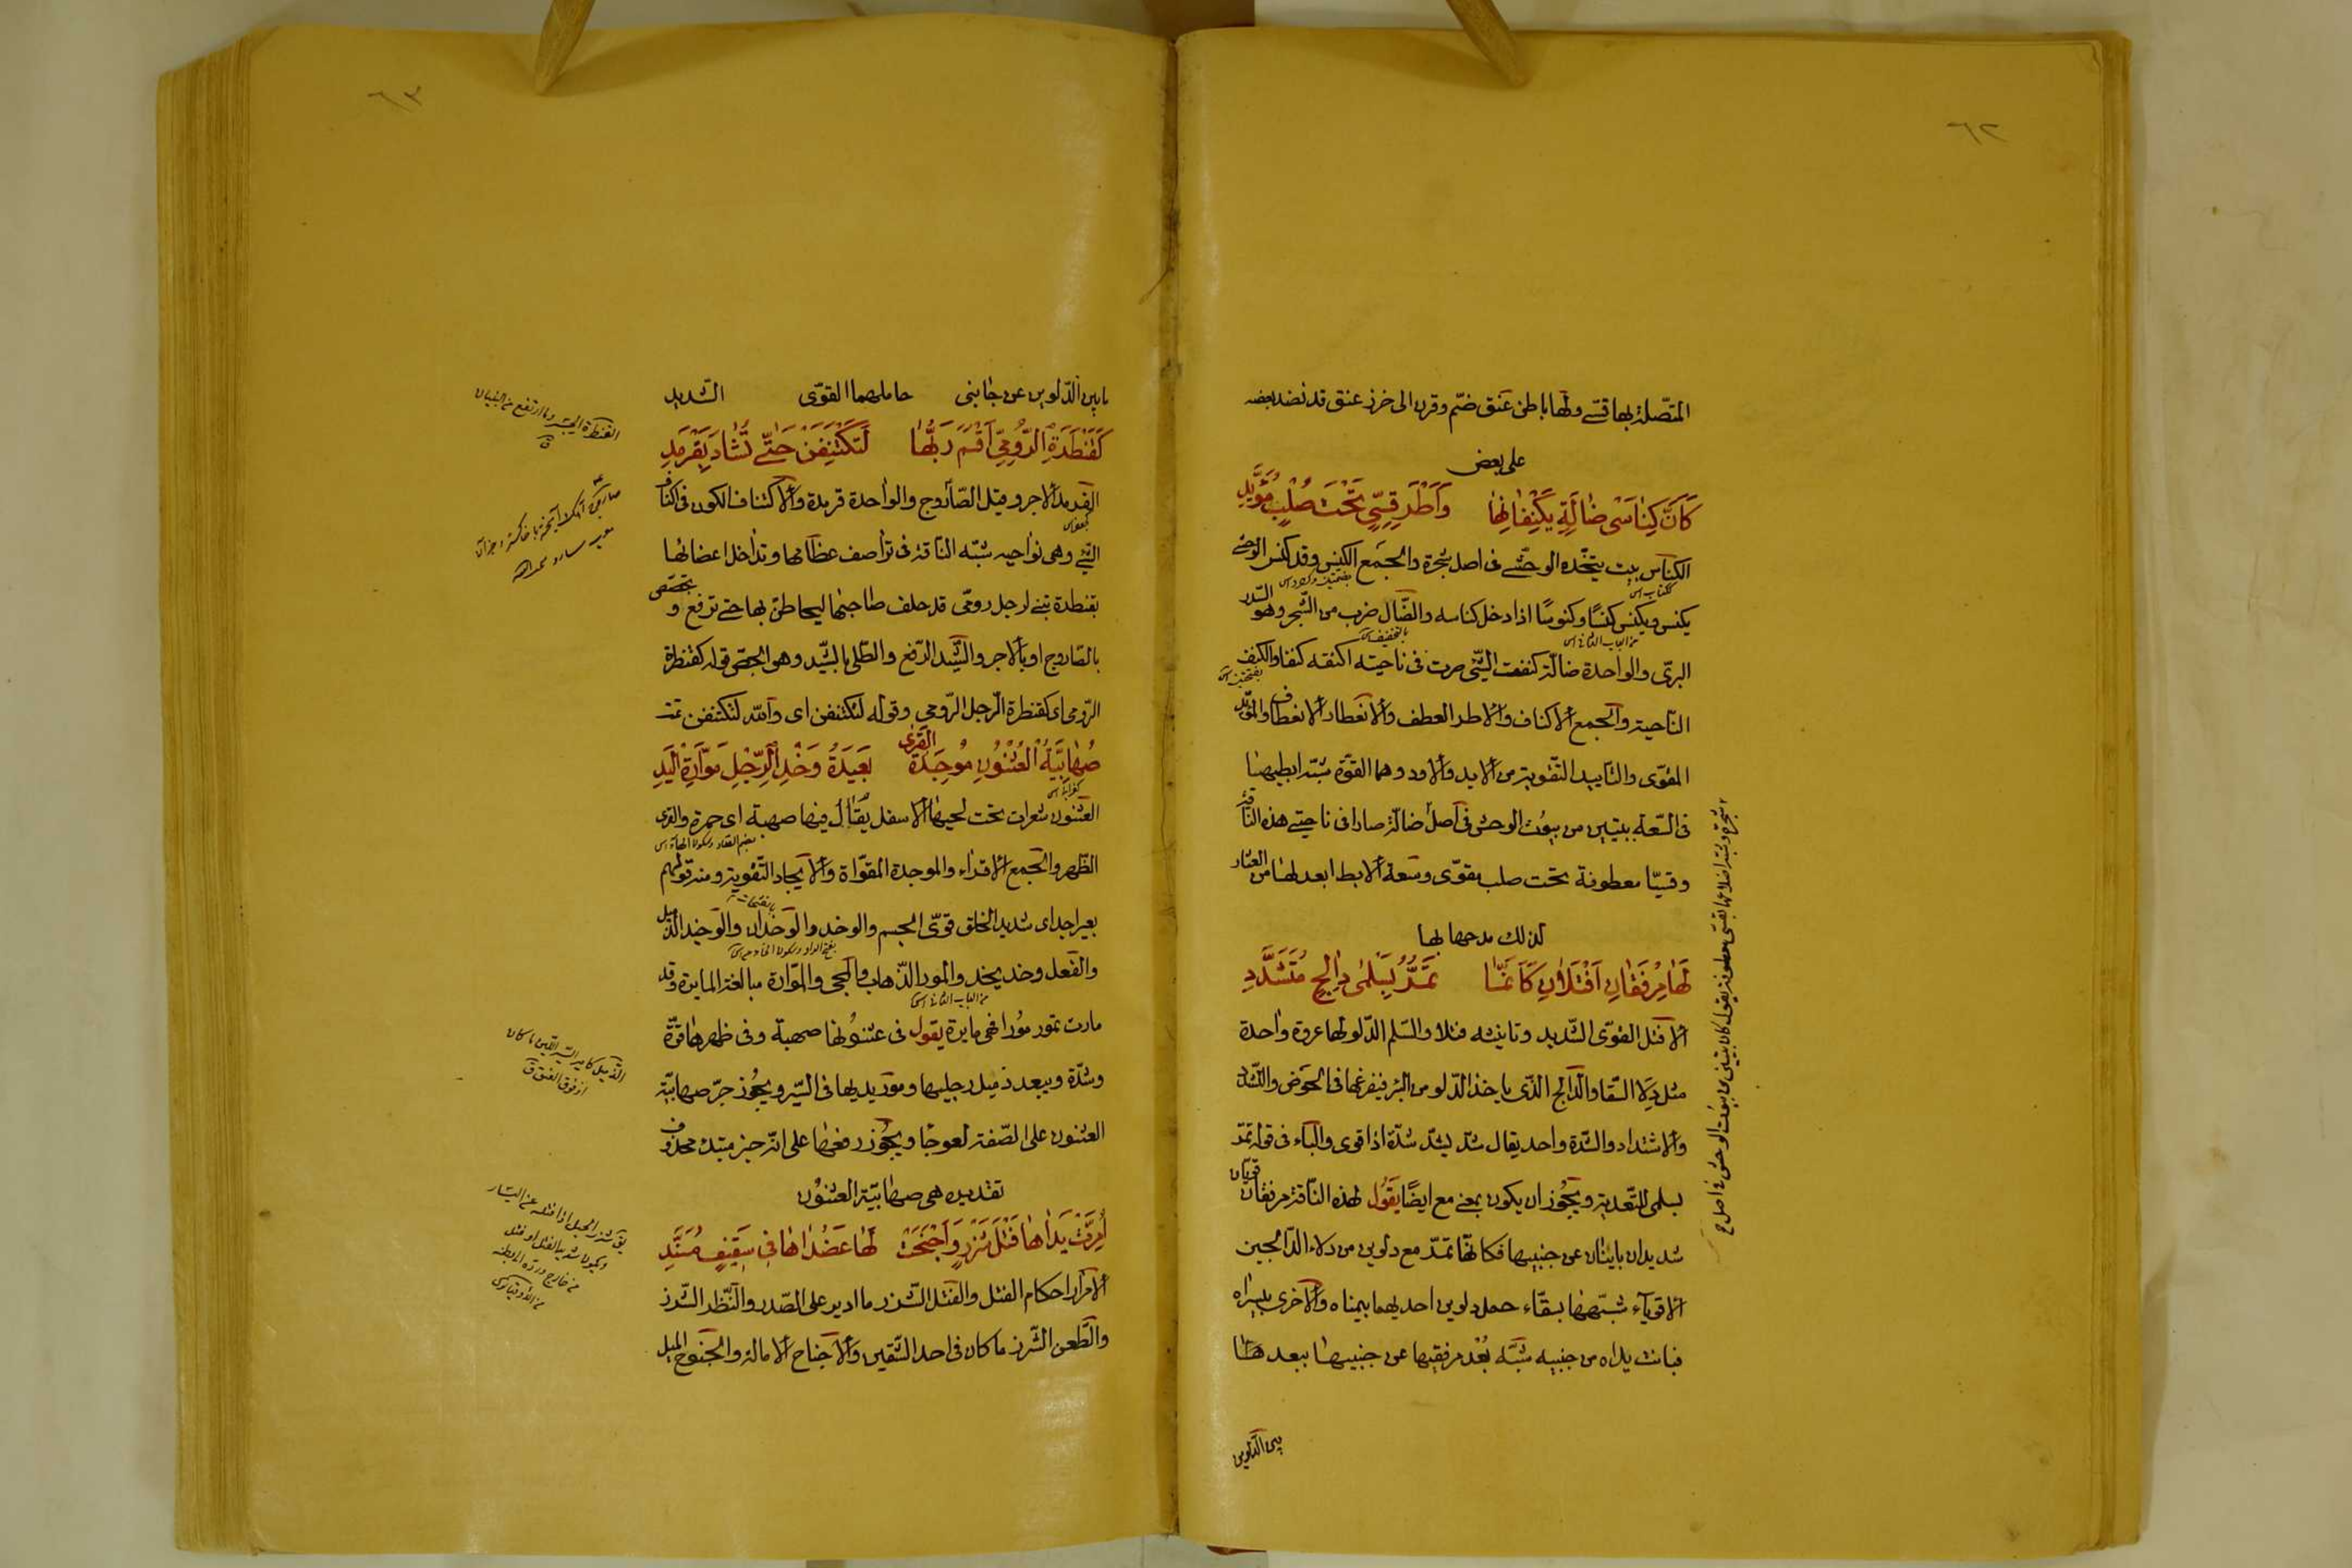 ٦٢
المتّصلة بها قسّى ولها باطن عنق ضمّ وقرن الى خرز عنق قد نضد بعضه
على بعض
كَاَنَّ كِنَاسَىْ ضَالَةٍ يَكْنِفَانِهَا وَاَطْرَ قِسِىٍّ تَحْتَ صُلْبٍ مُؤَيَّدِ
الكناس بيت يتّخذه الوحشى فى اصل شجرة والجمع الكنس وقد كنس الوحشى
يكنس ويكنس كنسًا وكنوسًا اذا دخل كناسه والضّال ضرب من الشّجر وهو السّدر
البرّى والواحدة ضالّة كنفت الشّىء صرت فى ناحيته اكنفه كنفا والكنف
النّاحية والجمع الاكناف والاطر العطف والانئطار الانعطاف والمؤيّد
المقوّى والتّأييد التّقوية من الايد والاود وهما القوّة شبّه ابطيها
فى السّعة ببيتين من بيوت الوحش فى اصل ضالّة صارا فى ناحيتى هذه النّاقة
وقسيّا معطوفة تحت صلب مقوّى وسعة الابط ابعد لها من العثار
لذلك مدحها بها
لَهَا مِرْفَقَانِ اَفْتَلَانِ كَاَنَّمَا تَمُرُّ بِسَلْمَىْ دَالِجٍ مُتَشَدِّدِ
الافتل القوّى الشّديد وتانيثه فتلا والسّلم الدّلو لها عروة واحدة
مثل دلاء السّقا والدّالج الّذى ياخذ الدّلو من البئر فيفرغها فى الحوض والتّشدّد
والاشتداد والشّدّة واحد يقال شدّ يشدّ شدّة اذا قوى والباء فى قوله تمرّ
بسلمى للتّعدية ويجوز ان يكون بمعنى مع ايضًا يقول لهذه النّاقة مرفقان قويّان
شديدان باينان عن جنبيها فكانّها تمدّ مع دلوين من دلاء الدّالجين
الاقويآء شبّهها بسقّاء حمل دلوين احديهما بيمناه والاخرى بيسراه
فبانت يداه من جنبيه شبّه بُعْد مرفقيها عن جنبيها ببعد هذا
بين الدّلوين
٦٣
ما بين الدّلوين عن جانبى حاملهما القوّى الشّديد
كَقَنْطَرَةِ الرُّومِىِّ اَقْسَمَ رَبُّهَا لَتُكْتَنَفَنْ حَتّٰى تُشَادَ بِقَرْمَدِ
القرمد الاجر وقيل الصّاروج والواحدة قرمدة والاكتناف الكون فى اكناف
الشّىء وهى نواحيه شبّه النّاقة فى تراصف عظامها وتداخل اعضائها
بقنطرة تبنى لرجل رومّى قد حلف صاحبها ليحاطنّ بها حتى ترفع و تجصّص
بالصّاروج او بالاجر والشّيد الرّفع والطّلى بالشّيد وهو الجصّ قوله كقنطرة
الرّومى اى كقنطرة الرّجل الرّومى وقوله لتكتنفن اى والله لتكتنفن تمت
صُهَابِيَّةُ الْعُثْنُونِ مُوجَدَةُ الْقَرٰى بَعِيدَةُ وَخْدِ الرِّجْلِ مَوَّارَةُ الْيَدِ
العثنون شعرات تحت لحيها الاسفل يقال فيها صهبة اى حمرة والقرى
الظّهر والجمع الاقراء والموجدة المقوّاة والايجاد التّقوية ومنه قولهم
بعير اجد اى شديد الخلق قوّى الجسم والوخد والوخدان والوخيد الذّميل
والفعل وخد يخد والمور الذّهاب والمجى والموّارة مبالغة المايرة وقد
مارت تمور مورا فهى مايرة يقول فى عثنونها صهبة وفى ظهرها قوّة
وشدّة ويبعد ذميل رجليها ومور يديها فى السّير ويجوز جرّ صهابيّة
العثنون على الصّفة لعوجا ويجوز رفعها على انّه خبر مبتدا محذوف
تقديره هى صهابيّة العثنون
اُمِرَّتْ يَدَاهَا فَتْلَ شَزْرٍ وَاُجْنِحَتْ لَهَا عَضُدَاهَا فِى سَقِيفٍ مُسَنَّدِ
الامرار احكام الفتل والفتل الشّزر ما ادير على الصّدر والنّظر الشّزر
والطّعن الشّزر ما كان فى احد الشّقين والاجناح الامالة والجنوح الميل
القنطرة الجسر وما ارتفع من البنيان
ق